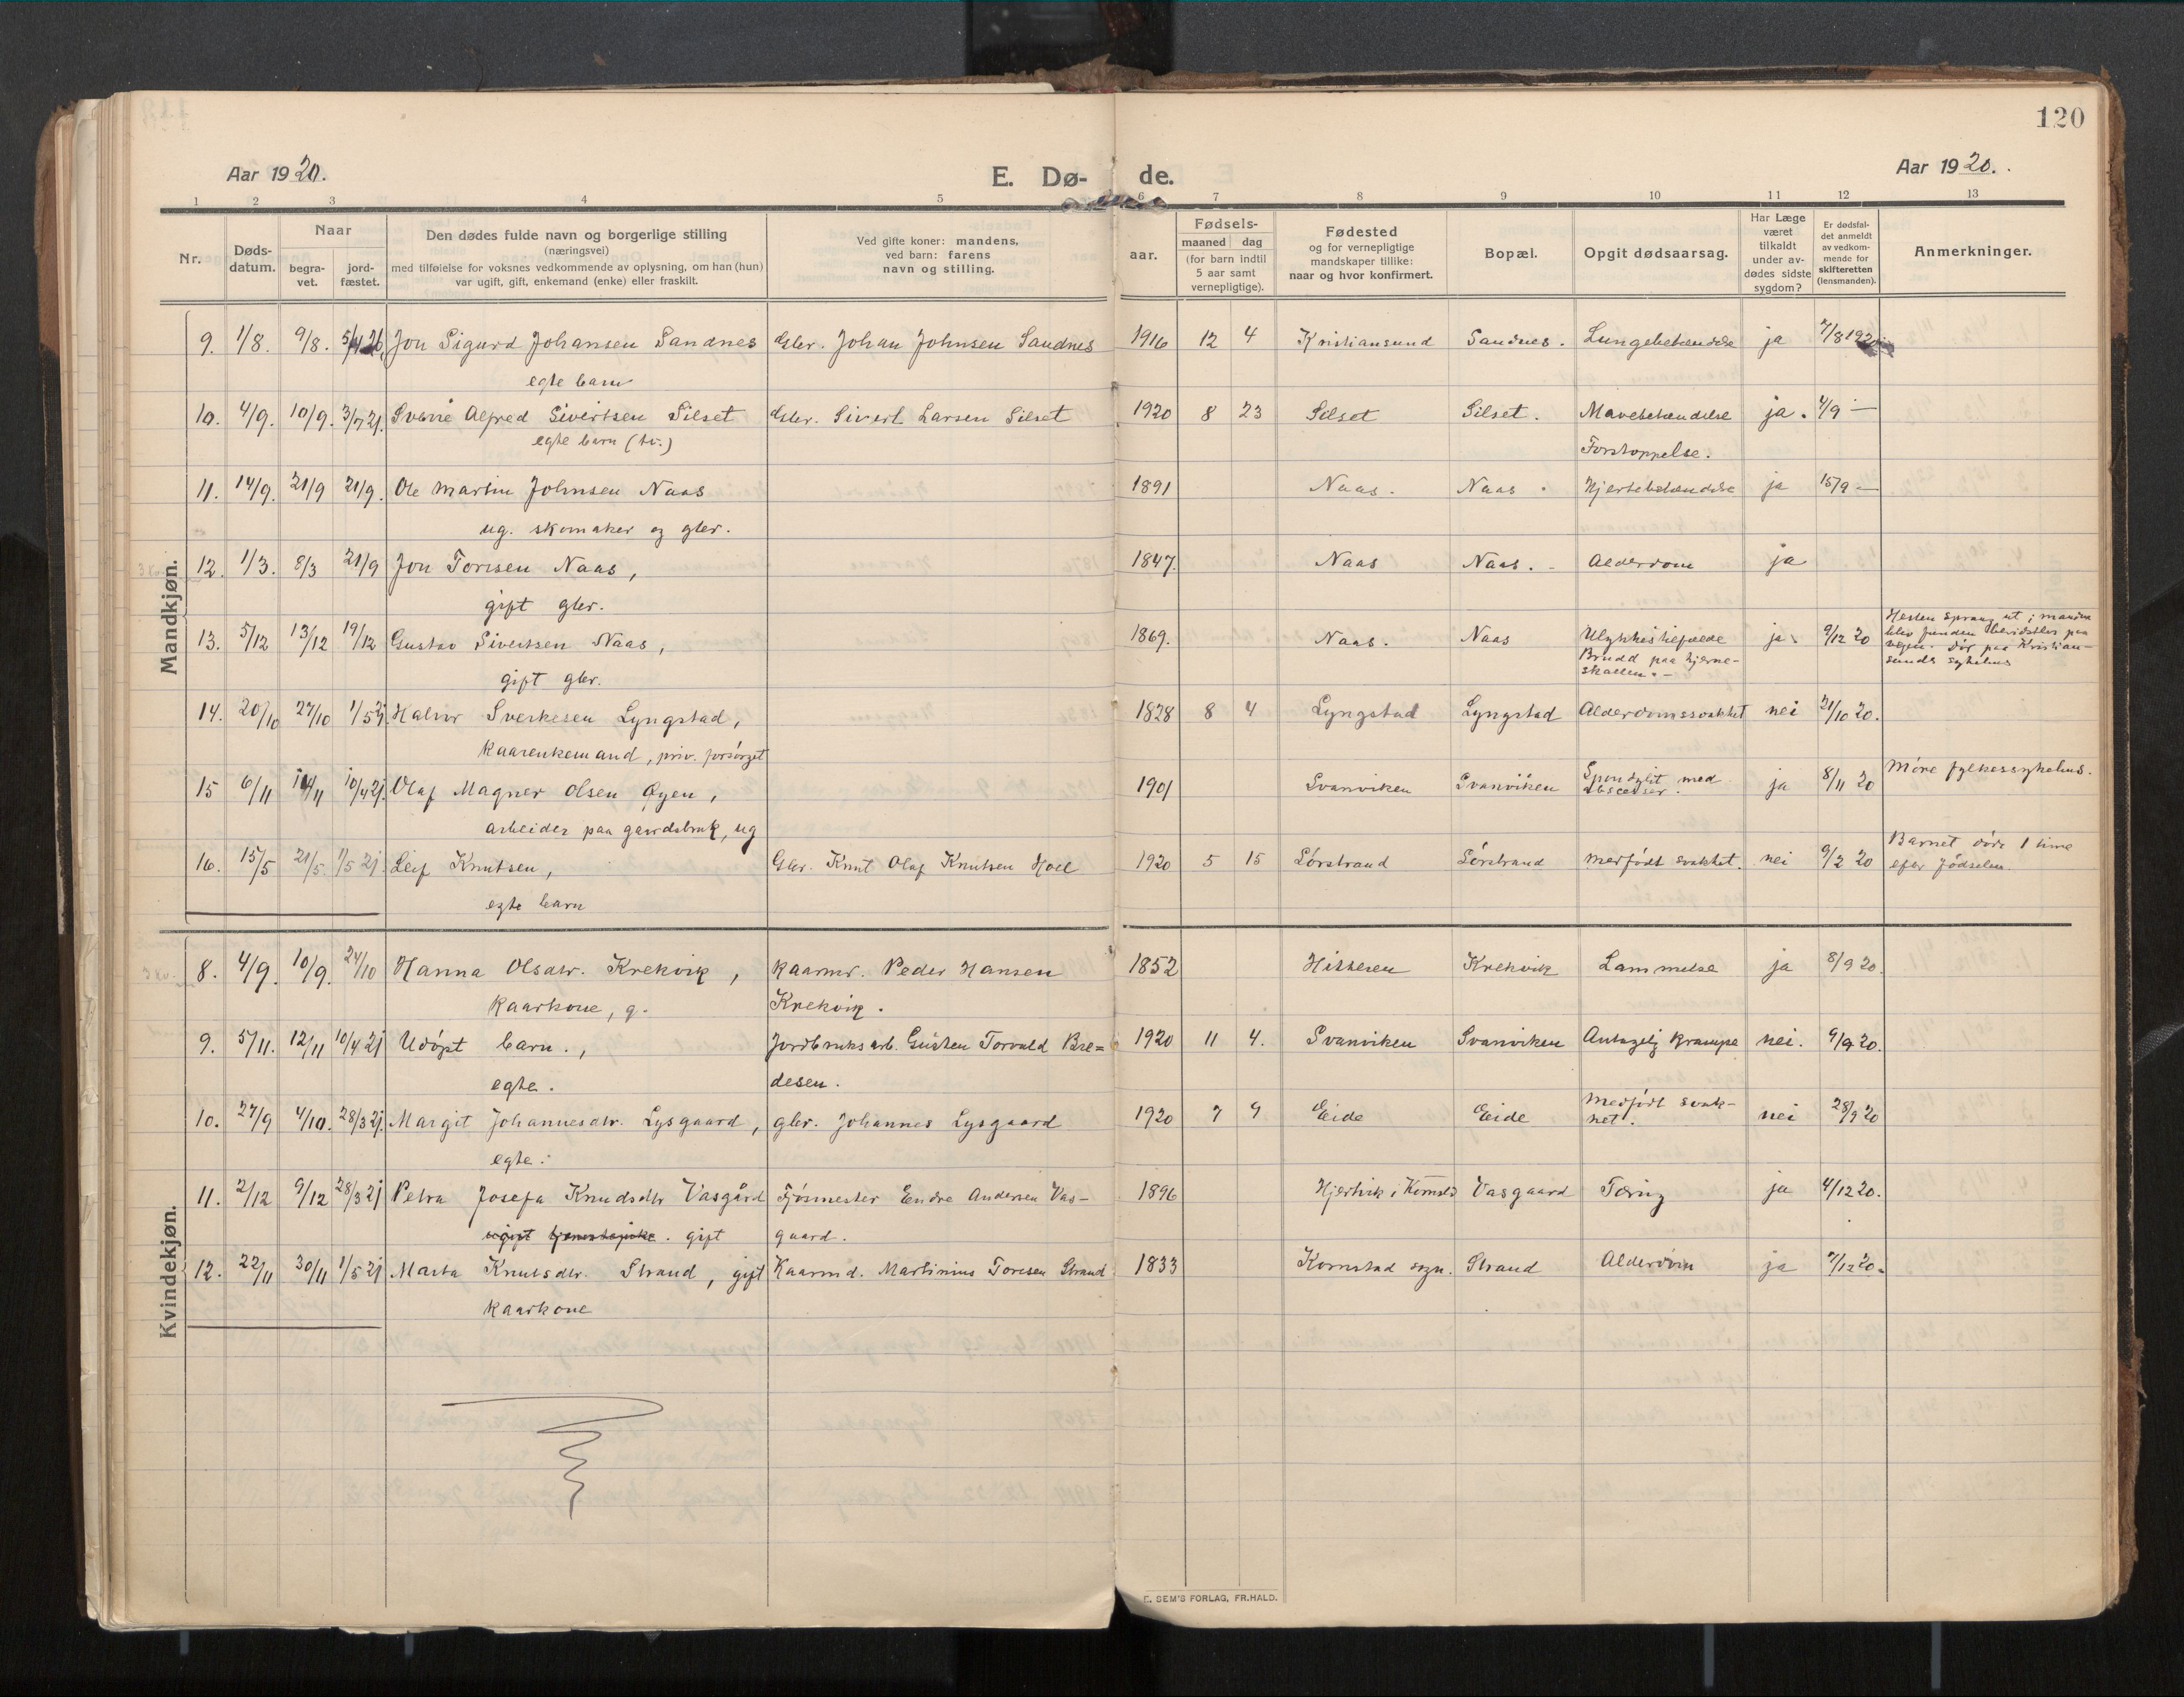 120
Aar 1920.
E. Dø-
de.
Aar 1920.
1 2 3 4 5 6 7 8 9 10 11 12 13
Nr.
Døds-
datum.
Naar
begra-
vet.
jord-
fæstet.
Den dødes fulde navn og borgerlige stilling
(næringsvei)
med tilføielse for voksnes vedkommende av oplysning, om han (hun)
var ugift, gift, enkemand (enke) eller fraskilt.
Ved gifte koner: mandens,
ved barn: farens
navn og stilling.
aar.
Fødsels-
maaned dag
(for barn indtil
5 aar samt
vernepligtige).
Fødested
og for vernepligtige
mandskaper tillike:
naar og hvor konfirmert.
Bopæl.
Opgit dødsaarsag.
Har Læge
været
tilkaldt
under av-
dødes sidste
sygdom?
Er dødsfal-
det anmeldt
av vedkom-
mende for
skifteretten
(lensmanden).
Anmerkninger.
Mandkjøn.
9. 1/8. 9/8. Jon Sigurd Johansen Sandnes Gbr. Johan Johnsen Sandnes 1916 12 4 Kristiansund Sandnes. Lungebetændelse ja 7/8 1920
egte barn
10. 4/9. 10/9. 3/7 21. Sverre Alfred Sivertsen Silset Gbr. Sivert Larsen Silset 1920 8 23 Silset Silset. Mavebetændelse ja. 4/9 —
egte barn (tv.) Forstoppelse.
11. 14/9. 21/9 21/9. Ole Martin Johnsen Naas 1891 Naas. Naas. Hjertebetændelse ja 15/9 —
ug. skomaker og gbr.
12. 1/3. 8/3 21/9 Jon Toresen Naas, 1847. Naas Naas. Alderdom ja
gift gbr.
13. 5/12 13/12 19/12 Gustav Sivertsen Naas, 1869. Naas. Naas Ulykkestilfælde ja 9/12 20 Hesten sprang ut; manden
blev funden bevidstløs paa
Brudd paa hjerne-
veien. Dør paa Kristian-
skallen.—
sunds sykehus
gift gbr.
14. 20/10 27/10 1/5 21 Halvor Sverkesen Lyngstad, 1828 8 4 Lyngstad Lyngstad Alderdomssvakhet nei 21/10 20.
Kaarenkemand, priv. forsørget
15 6/11 14/11 10/4 21. Olaf Magner Olsen Øyen, 1901 Svanviken Svanviken Spondylit med ja 8/11 20 Møre fylkessykehus.
abscesser.
arbeider paa gaardsbruk, ug
16. 15/5 21/5. 1/5 21. Leif Knutsen, Gbr. Knut Olaf Knutsen Hoel 1920 5 15 Sørstrand Sørstrand Medfødt svakhet. nei 9/2 20 Barnet døde 1 time
efter fødselen.
egte barn
Kvindekjøn.
8. 4/9. 10/9. 24/10 Hanna Olsdtr. Krekvik, Kaarmd. Peder Hansen 1852 Krekvik Lammelse ja 8/9 20.
Kaarkone, g. Krekvik.
9. 5/11. 12/11 10/4 21 Udøpt barn., Jordbruksarb. Gusten Torvald Bre= 1920 11 4. Svanviken Svanviken Antagelig Krampe nei. 9/9 20.
egte. desen.
10. 27/9 4/10. 28/3 21. Margit Johannesdtr. Lysgaard, gbr. Johannes Lysgaard 1920 7 9 Eide Eide Medfødt svak- nei 28/9 20
het.
egte.
11. 2/12 9/12 28/3 21 Petra Josefa Knudsdtr Vasgård Fjøsmester Endre Andersen Vas- 1896 Hjertvik i Kornstd Vasgaard Tæring ja 4/12 20.
ugift tjenestepike. gift gaard.
12. 22/11 30/11 1/5 21 Marta Knutsdtr. Strand, gift Kaarmd. Martinius Toresen Strand 1833 Kornstad sogn. Strand Alderdom ja 7/12 20.
Kaarkone
E. SEM'S FORLAG, FR.HALD.